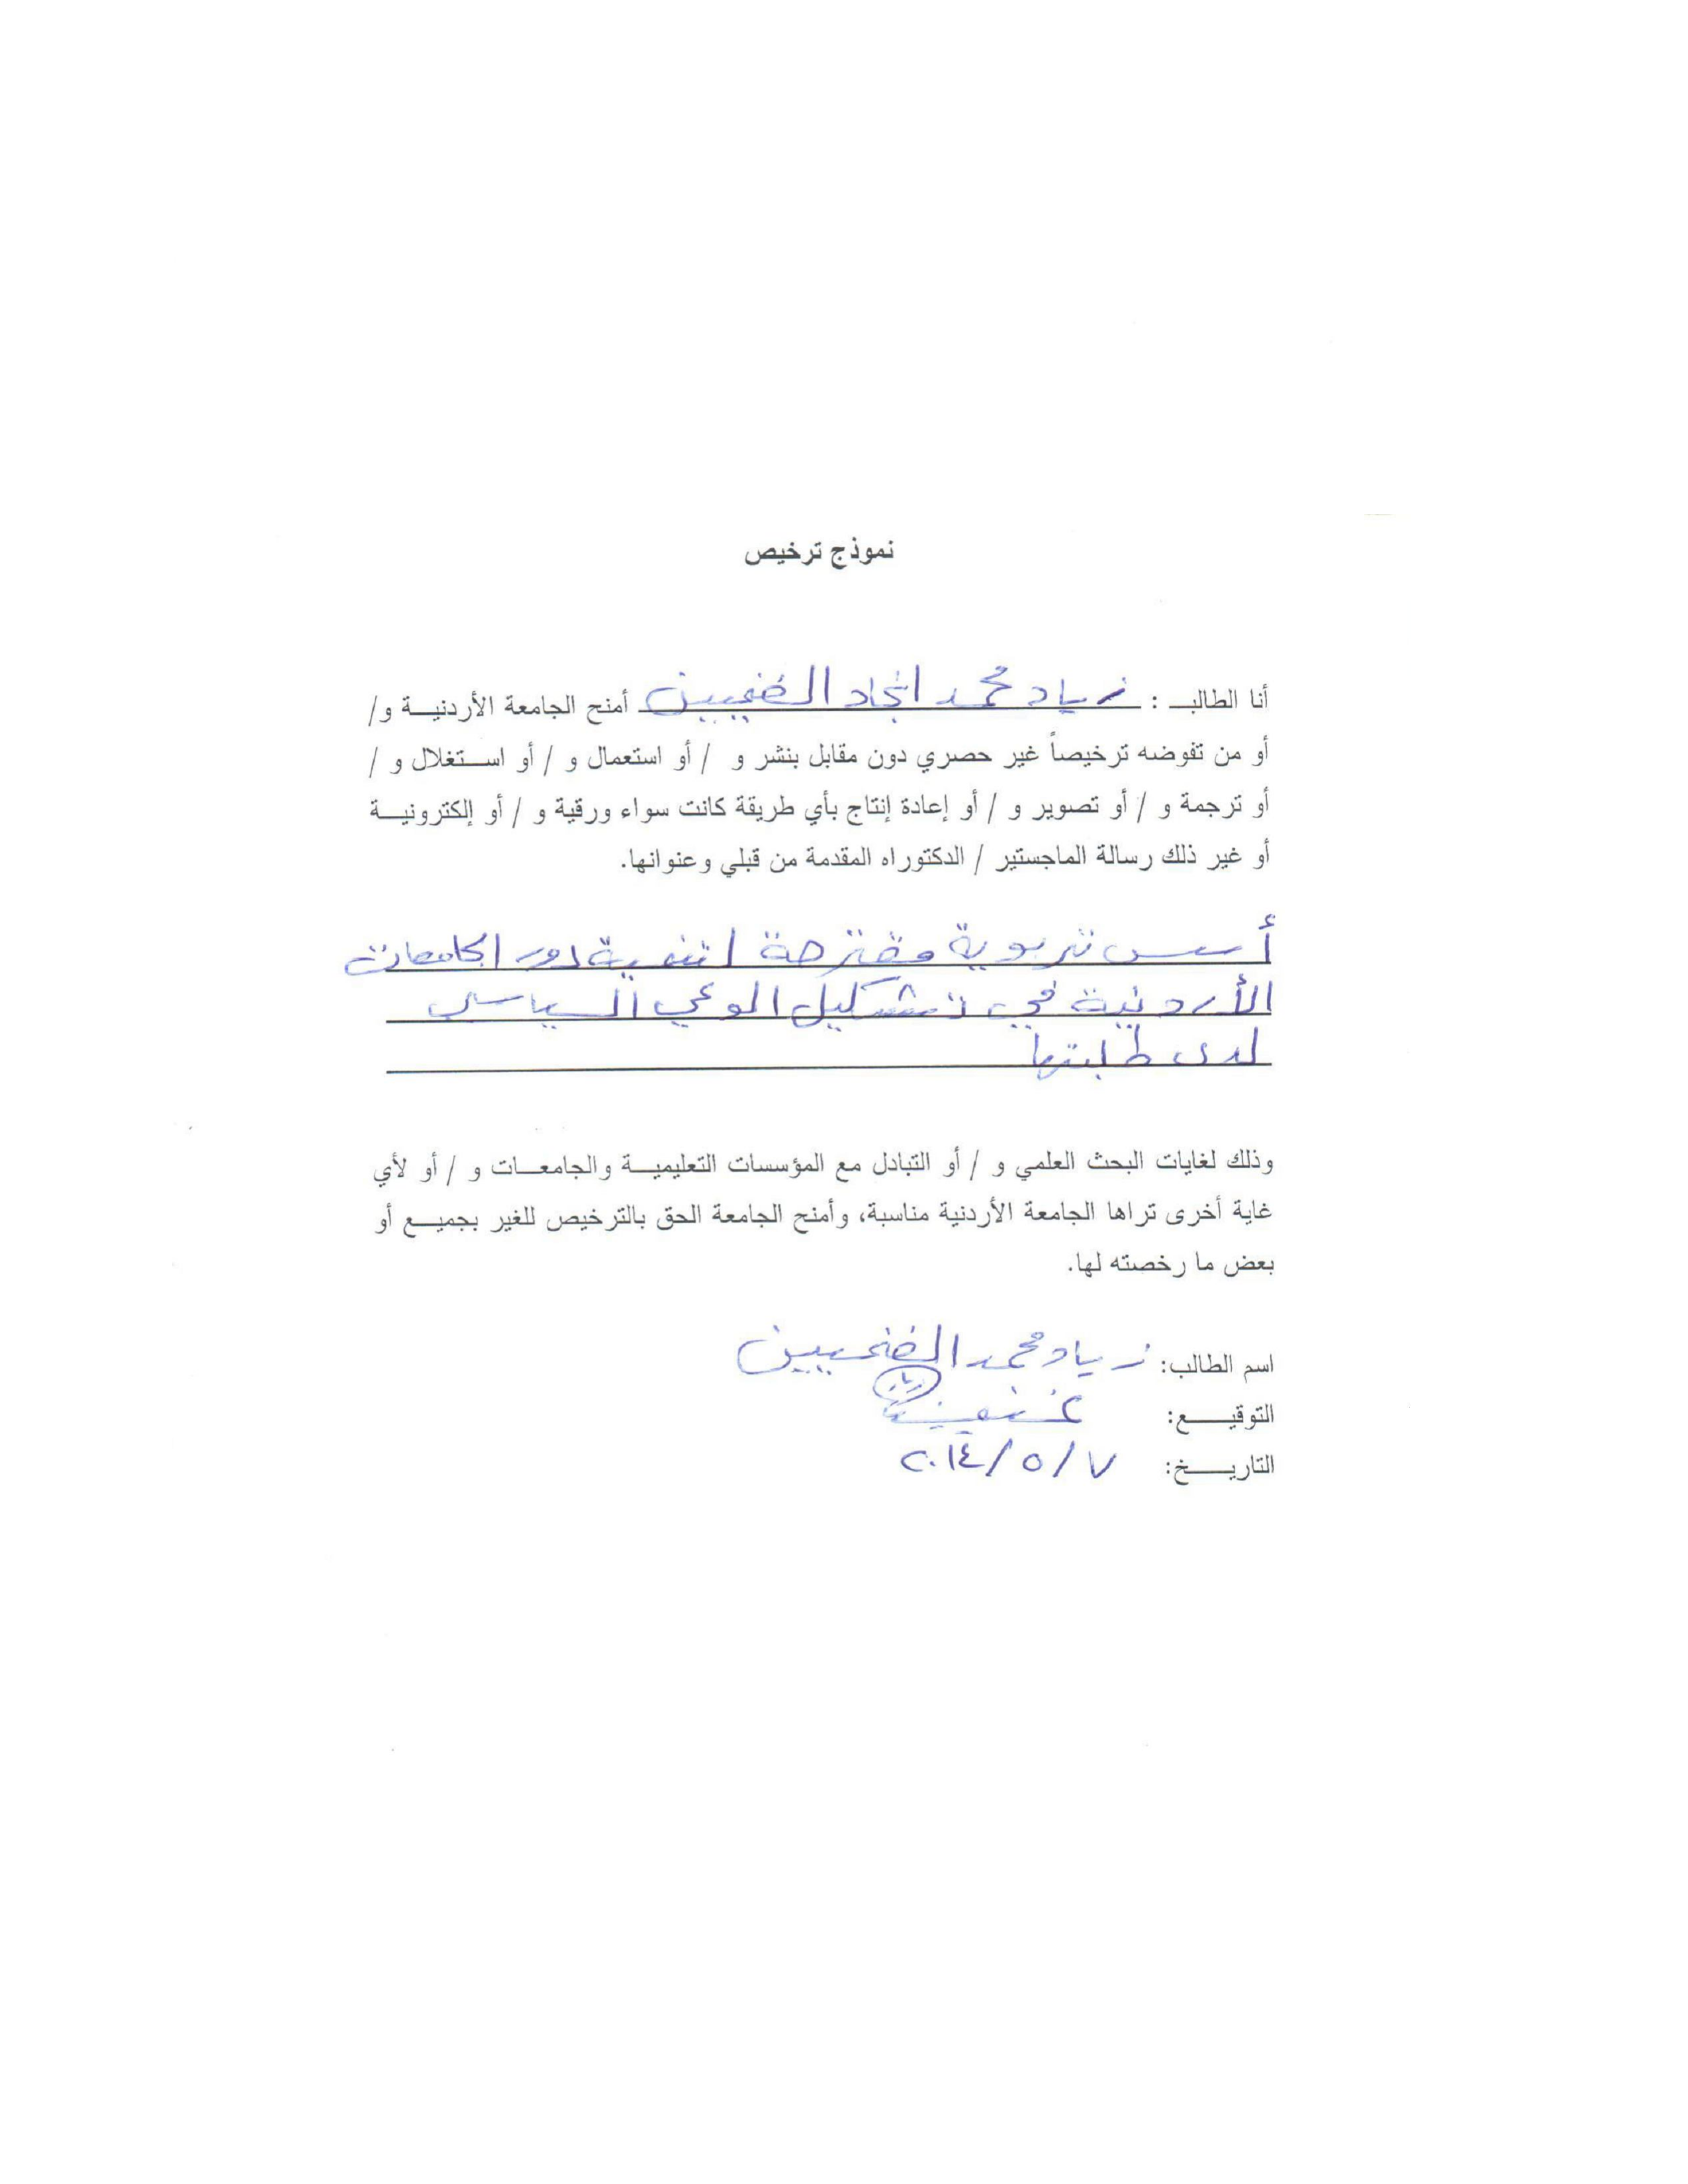 نموذج ترخيص
أنا الطالب : زياد محمد انجاد الغنميين أمنح الجامعة الأردنية و/
أو من تفوضه ترخيصاً غير حصري دون مقابل بنشر و / أو استعمال و / أو استغلال و /
أو ترجمة و / أو تصوير و / أو إعادة إنتاج بأي طريقة كانت سواء ورقية و / أو إلكترونية
أو غير ذلك رسالة الماجستير / الدكتوراه المقدمة من قبلي وعنوانها.
أسس تربوية مقترحة لتنمية دور الجامعات
الأردنية في تشكيل الوعي السياسي
لدى طلبتها
وذلك لغايات البحث العلمي و / أو التبادل مع المؤسسات التعليمية والجامعات و / أو لأي
غاية أخرى تراها الجامعة الأردنية مناسبة، وأمنح الجامعة الحق بالترخيص للغير بجميع أو
بعض ما رخصته لها.
اسم الطالب: زياد محمد الغنميين
التوقيع:
التاريخ: ٢٠١٤/٥/٧